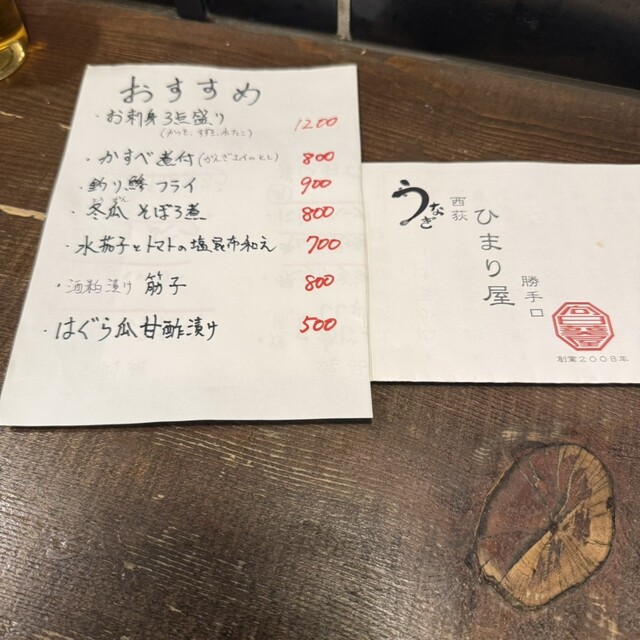 おすすめ
・お刺身3点盛り 1200
・かすべ煮付(がんぎエイのヒレ) 800
・釣り鯵フライ 900
・冬瓜そぼろ煮 800
・水茄子とトマトの塩昆布和え 700
・酒粕漬け 筋子 800
・はぐら瓜甘酢漬け 500
うなぎ
西荻
ひまり屋
勝手口
創業2008年